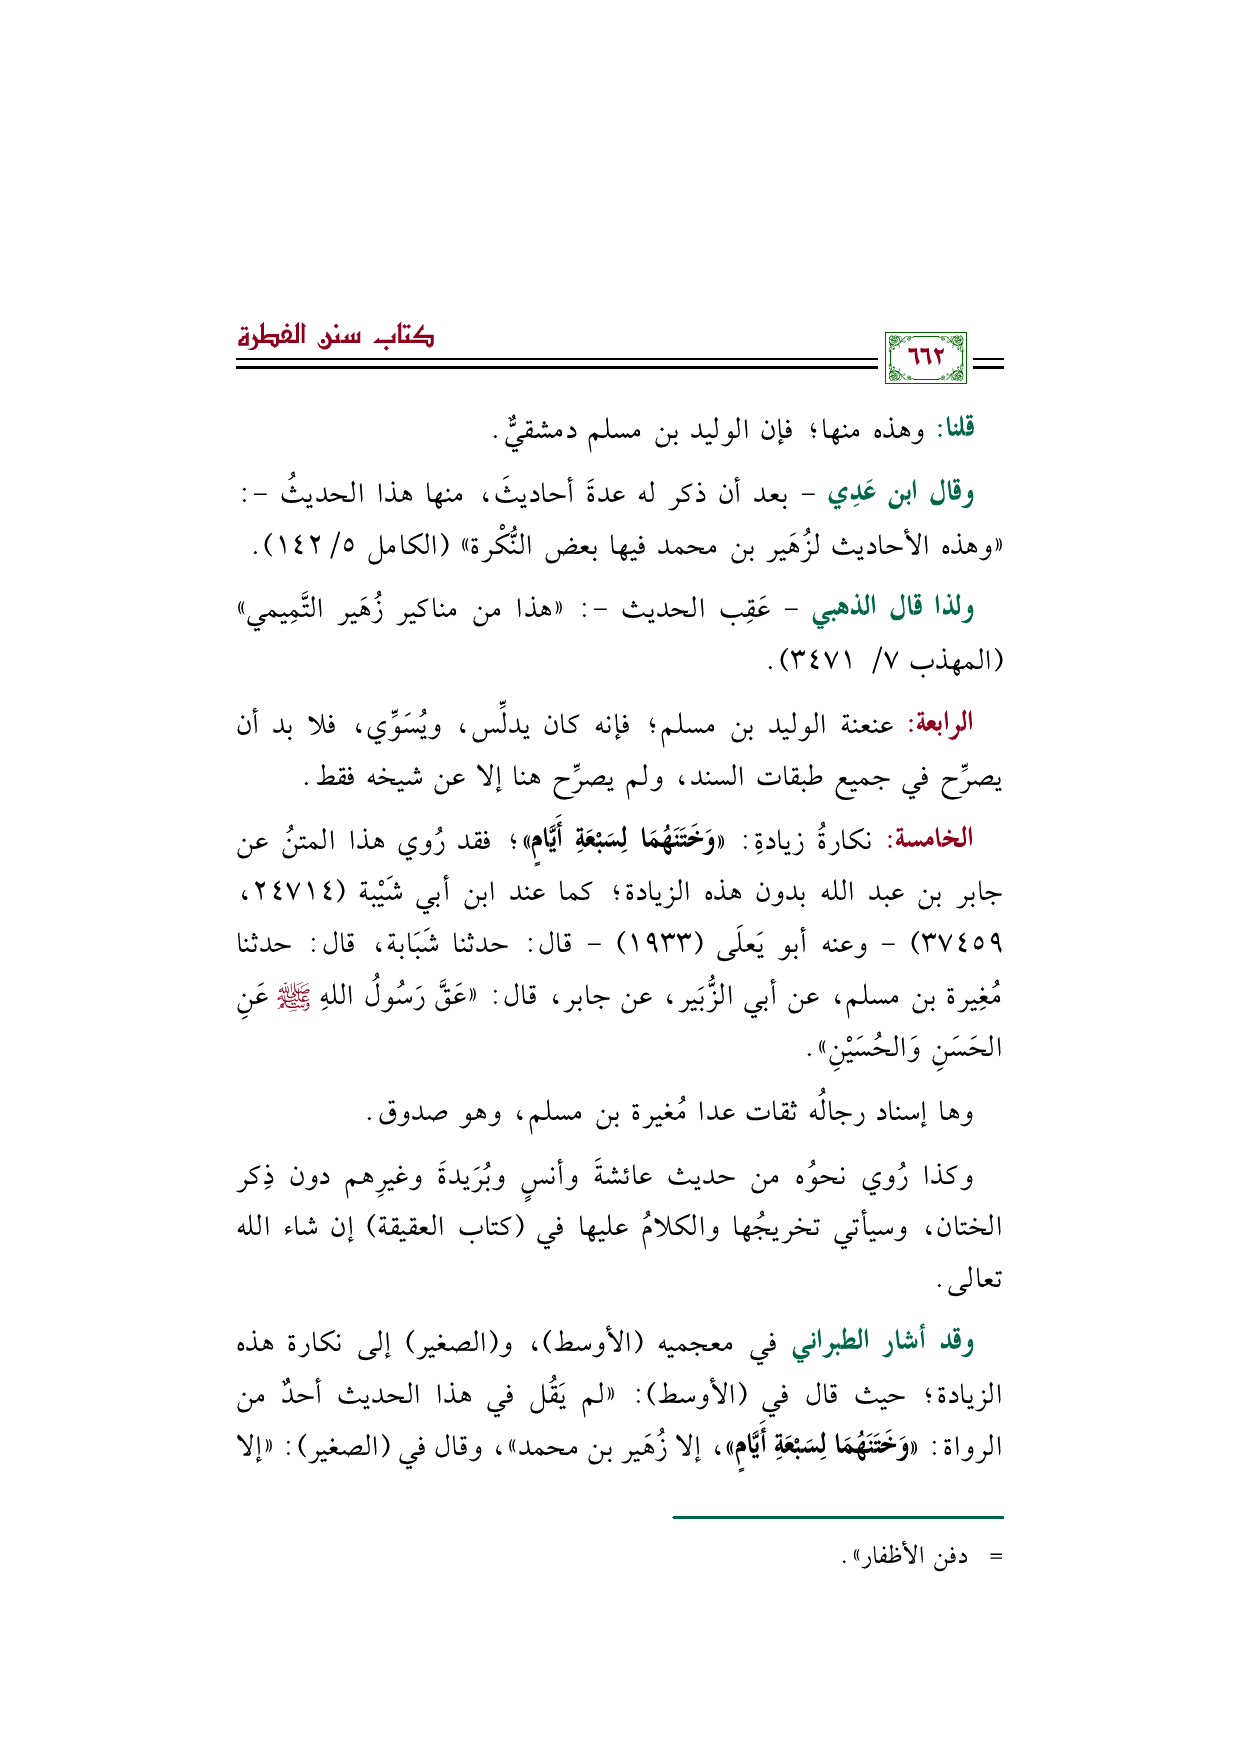 كتاب سنن الفطرة
٦٦٢
قلنا: وهذه منها؛ فإن الوليد بن مسلم دمشقيٌّ.
وقال ابن عَدِي – بعد أن ذكر له عدةَ أحاديثَ، منها هذا الحديثُ –:
«وهذه الأحاديث لزُهَير بن محمد فيها بعض النُّكْرة» (الكامل ٥/ ١٤٢).
ولذا قال الذهبي – عَقِب الحديث –: «هذا من مناكير زُهَير التَّمِيمي»
(المهذب ٧/ ٣٤٧١).
الرابعة: عنعنة الوليد بن مسلم؛ فإنه كان يدلِّس، ويُسَوِّي، فلا بد أن
يصرِّح في جميع طبقات السند، ولم يصرِّح هنا إلا عن شيخه فقط.
الخامسة: نكارةُ زيادةِ: «وَخَتَنَهُمَا لِسَبْعَةِ أَيَّامٍ»؛ فقد رُوي هذا المتنُ عن
جابر بن عبد الله بدون هذه الزيادة؛ كما عند ابن أبي شَيْبة (٢٤٧١٤،
٣٧٤٥٩) – وعنه أبو يَعلَى (١٩٣٣) – قال: حدثنا شَبَابة، قال: حدثنا
مُغِيرة بن مسلم، عن أبي الزُّبَير، عن جابر، قال: «عَقَّ رَسُولُ اللهِ ﷺ عَنِ
الحَسَنِ وَالحُسَيْنِ».
وها إسناد رجالُه ثقات عدا مُغيرة بن مسلم، وهو صدوق.
وكذا رُوي نحوُه من حديث عائشةَ وأنسٍ وبُرَيدةَ وغيرِهم دون ذِكر
الختان، وسيأتي تخريجُها والكلامُ عليها في (كتاب العقيقة) إن شاء الله
تعالى.
وقد أشار الطبراني في معجميه (الأوسط)، و(الصغير) إلى نكارة هذه
الزيادة؛ حيث قال في (الأوسط): «لم يَقُل في هذا الحديث أحدٌ من
الرواة: «وَخَتَنَهُمَا لِسَبْعَةِ أَيَّامٍ»، إلا زُهَير بن محمد»، وقال في (الصغير): «إلا
= دفن الأظفار».